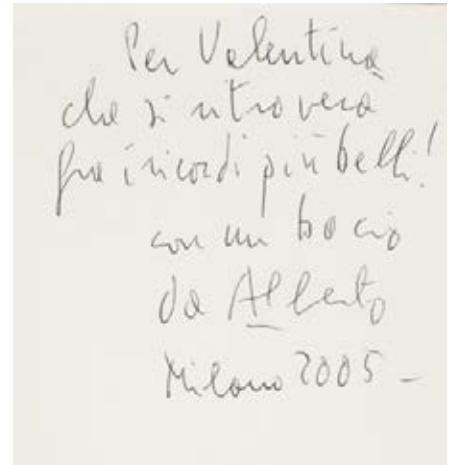 Per Valentina
che si ritroverà
fra i ricordi più belli!
con un bacio
da Alberto
Milano 2005 -